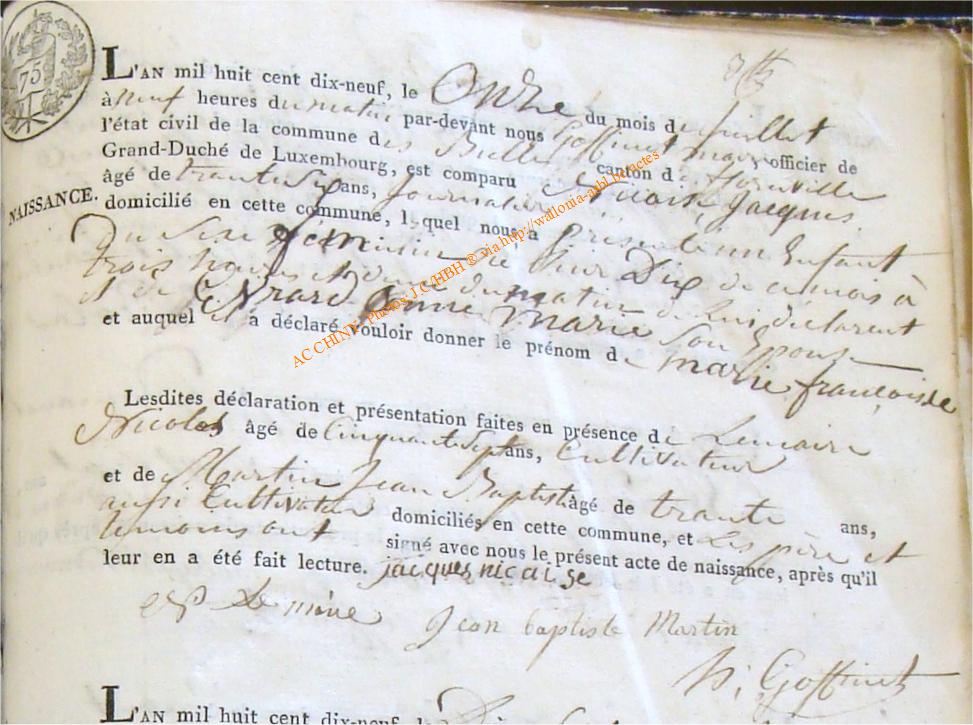 75
NAISSANCE.
L'AN mil huit cent dix-neuf, le Onze du mois de juillet
à neuf heures du matin par-devant nous Goffinet maire officier de
l'état civil de la commune des Bulles canton de florenville
Grand-Duché de Luxembourg, est comparu Nicaise Jacques
âgé de trante six ans, journalier
domicilié en cette commune, lequel nous a presenté un Enfant
du sexe feminin né hier Dix de ce mois à
trois heures du matin de lui declarent
et de Anne Marie Son Epouse
et auquel il a déclaré vouloir donner le prénom de marie françoise
Lesdites déclaration et présentation faites en présence de Lemaire
Nicolas âgé de Cinquante sept ans, Cultivateur
et de Martin Jean Baptiste âgé de trante ans,
aussi Cultivateur domiciliés en cette commune, et Les père et
temoins ont signé avec nous le présent acte de naissance, après qu'il
leur en a été fait lecture. jacques nicaise
Jean baptiste Martin
Goffinet
AC CHINY - Photos J.C./HBH ® via http://wallonia-asbl.be/actes
L'AN mil huit cent dix-neuf, le